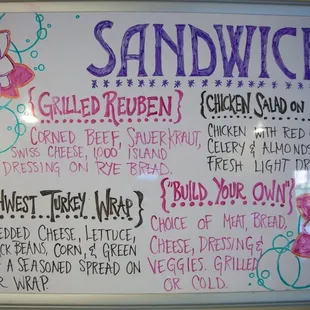 SANDWIC
{GRILLED REUBEN}
CORNED BEEF, SAUERKRAUT,
SWISS CHEESE, 1,000 ISLAND
DRESSING ON RYE BREAD.
{CHICKEN SALAD ON
CHICKEN WITH RED
CELERY & ALMONDS
FRESH LIGHT DR
HWEST TURKEY WRAP}
EDDED CHEESE, LETTUCE,
CK BEANS, CORN, & GREEN
A SEASONED SPREAD ON
R WRAP.
{"BUILD YOUR OWN"}
CHOICE OF MEAT, BREAD,
CHEESE, DRESSING &
VEGGIES. GRILLED
OR COLD.